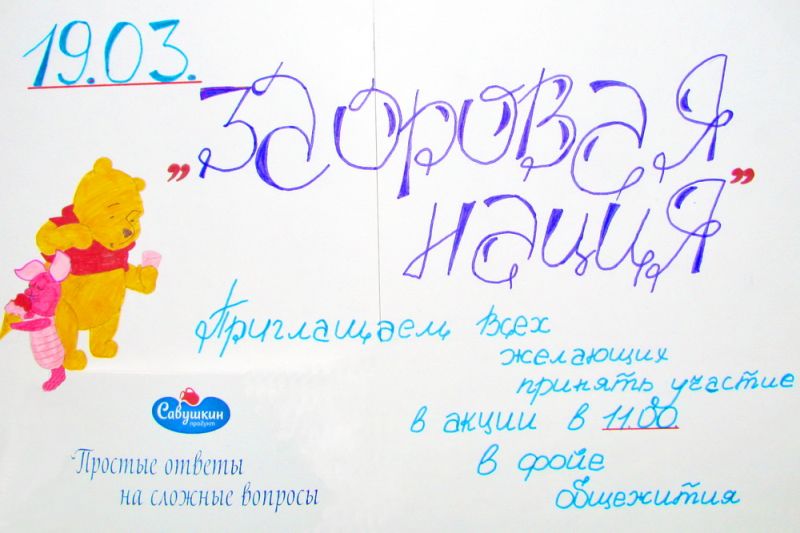 19.03.
"Здоровая
нация"
Приглашаем всех
желающих
принять участие
в акции в 11.00
в фойе
общежития
Савушкин
продукт
Простые ответы
на сложные вопросы